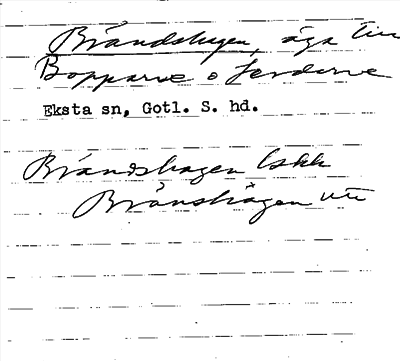 Brändshagen, äga till
Bopparve o Jerderve
Eksta sn, Gotl. S. hd.
Brändshagen
Bränshågen utt